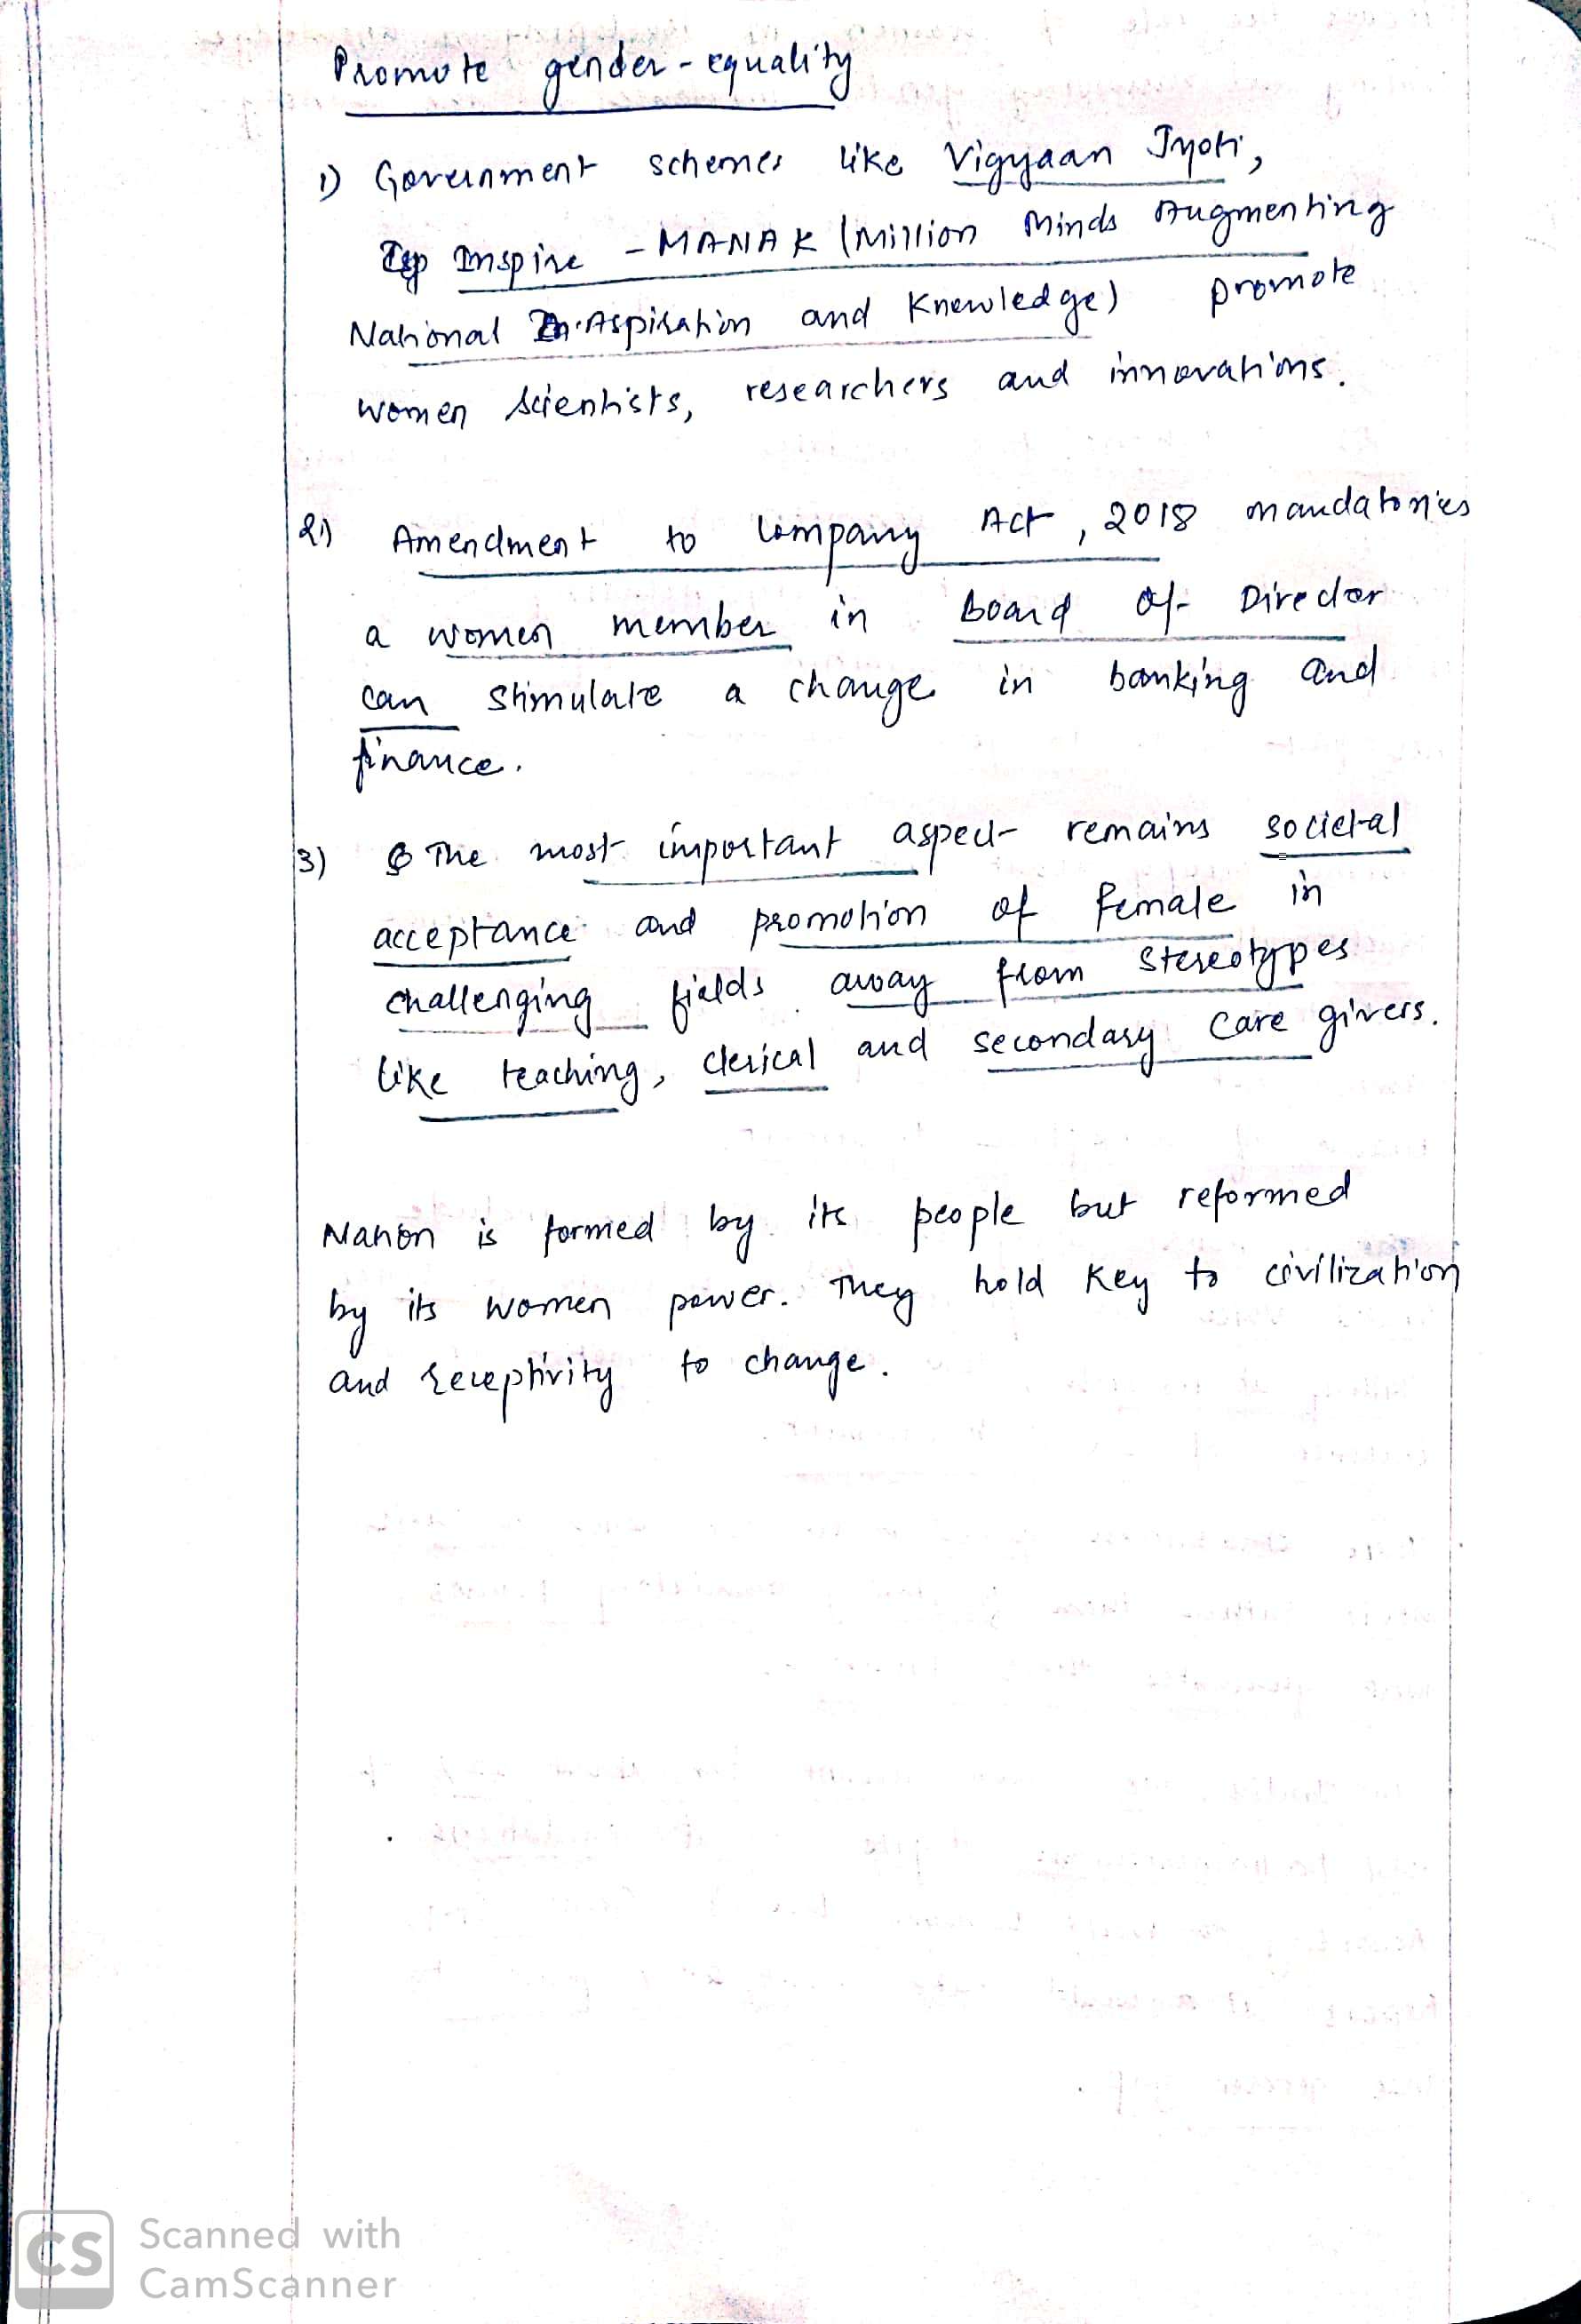 Promote gender-equality
1) Government schemes like Vigyaan Jyoti,
Inspire - MANAK (Million Minds Augmenting
National Aspiration and Knowledge) promote
women scientists, researchers and innovations.
2) Amendment to Company Act, 2018 mandatories
a women member in Board of Director
can stimulate a change in banking and
finance.
3) The most important aspect remains societal
acceptance and promotion of female in
challenging fields away from stereotypes
like teaching, clerical and secondary care givers.
Nation is formed by its people but reformed
by its women power. They hold key to civilization
and receptivity to change.
CS Scanned with
CamScanner